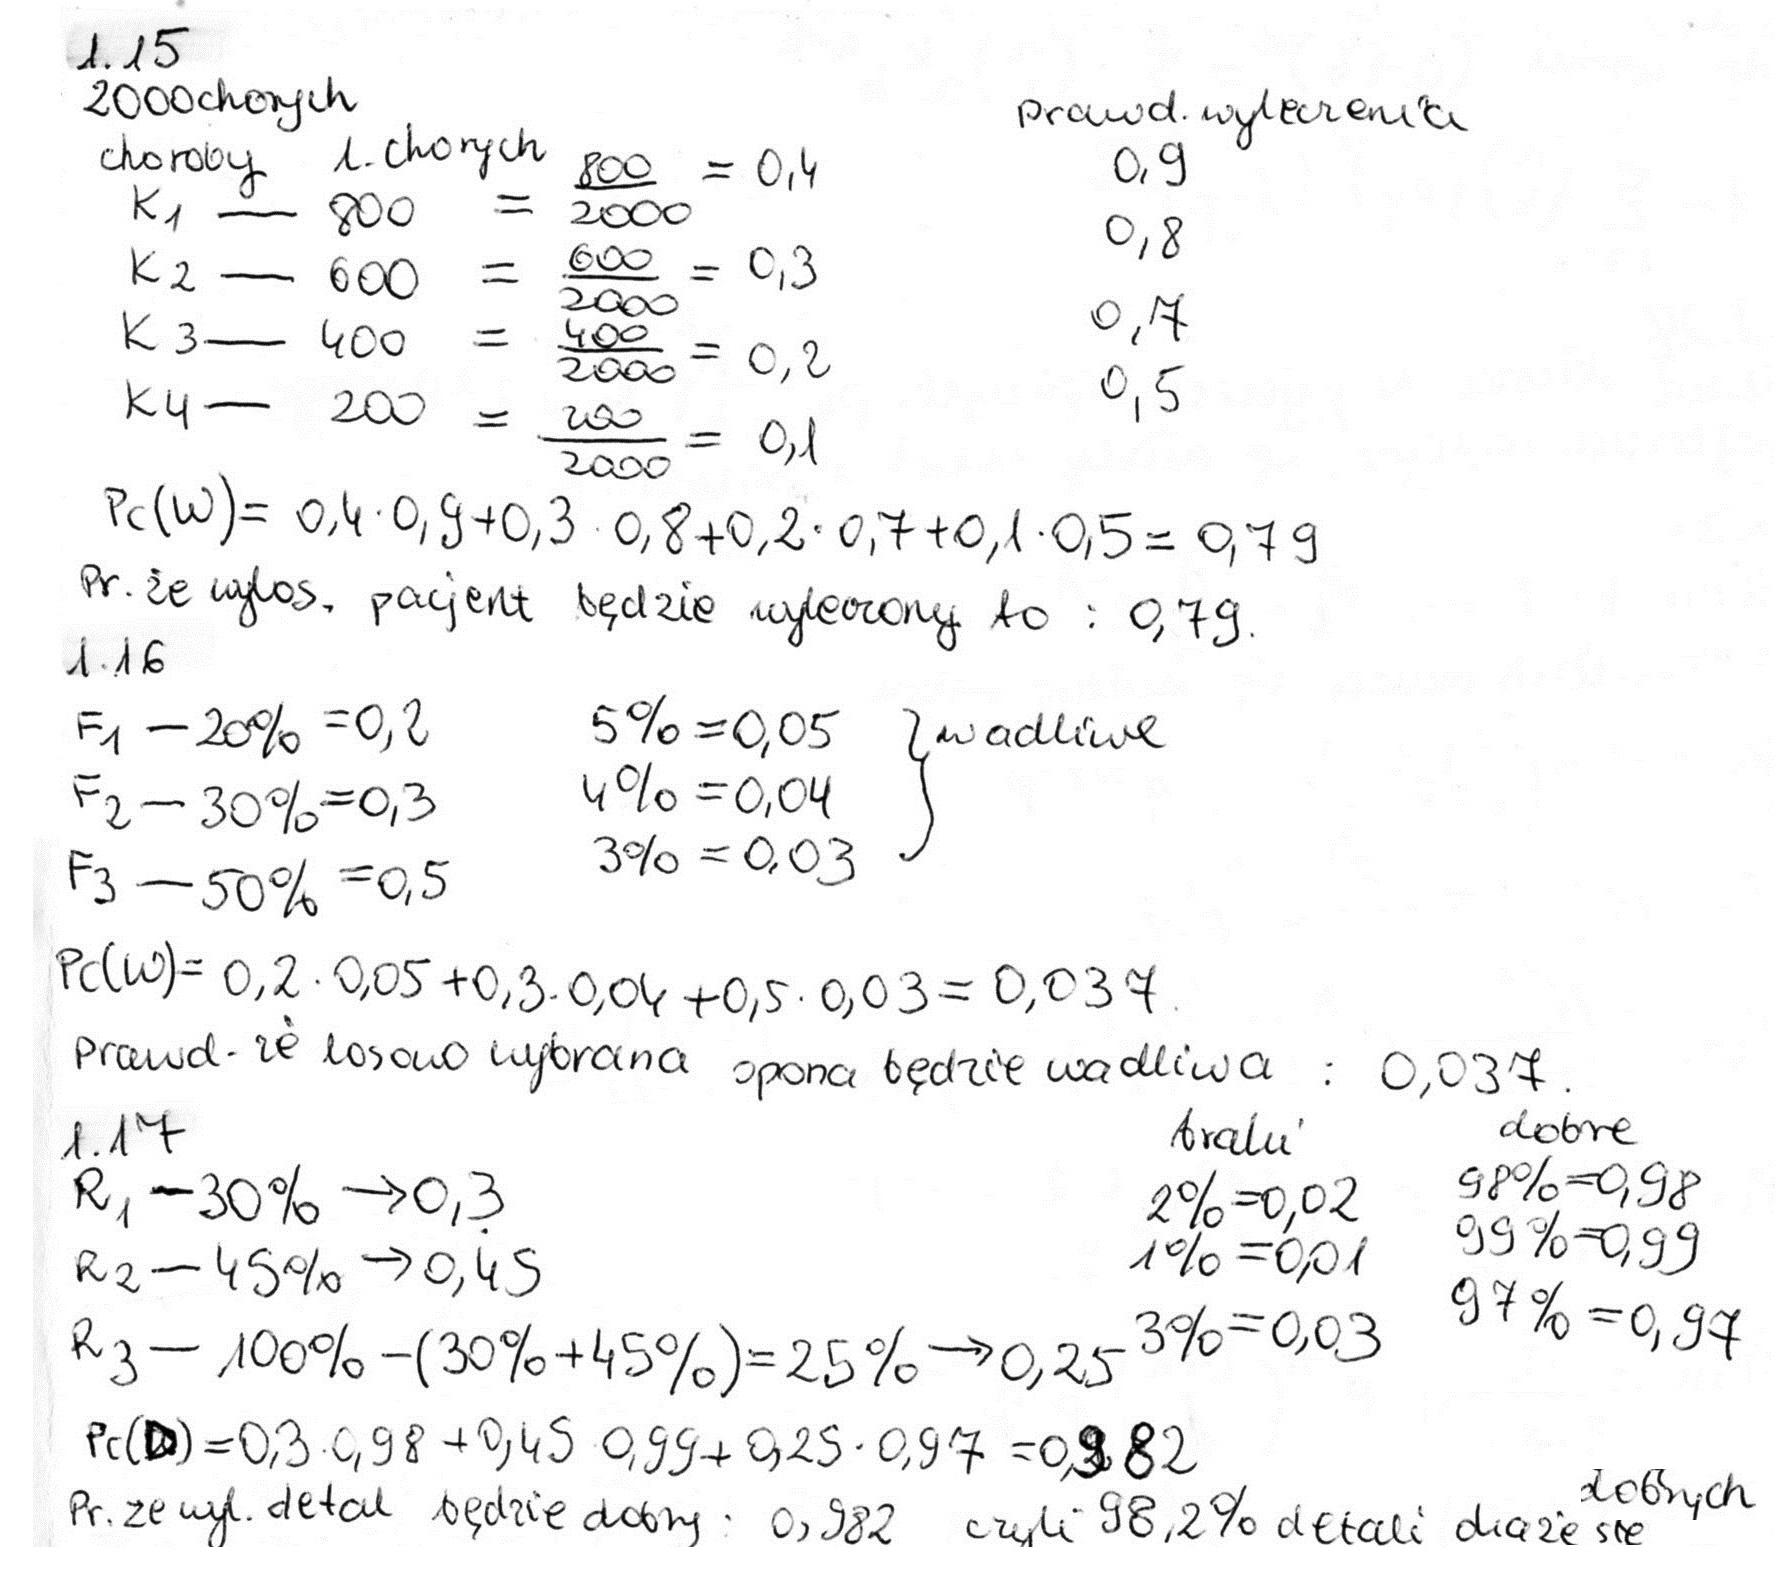 1.15
2000 chorych
choroby l. chorych prawd. wyleczenia
K1 — 800 = 800/2000 = 0,4 0,9
K2 — 600 = 600/2000 = 0,3 0,8
K3 — 400 = 400/2000 = 0,2 0,7
K4 — 200 = 200/2000 = 0,1 0,5
Pc(W) = 0,4·0,9+0,3·0,8+0,2·0,7+0,1·0,5 = 0,79
Pr. że wylos. pacjent będzie wyleczony to : 0,79.
1.16
F1 — 20% = 0,2 5% = 0,05 } wadliwe
F2 — 30% = 0,3 4% = 0,04
F3 — 50% = 0,5 3% = 0,03
Pc(W) = 0,2·0,05+0,3·0,04+0,5·0,03 = 0,037.
Prawd. że losowo wybrana opona będzie wadliwa : 0,037.
1.17 braki dobre
R1 — 30% → 0,3 2% = 0,02 98% = 0,98
R2 — 45% → 0,45 1% = 0,01 99% = 0,99
R3 — 100% – (30%+45%) = 25% → 0,25 3% = 0,03 97% = 0,97
Pc(D) = 0,3·0,98 + 0,45·0,99 + 0,25·0,97 = 0,982
Pr. ze wyl. detal będzie dobry : 0,982 czyli 98,2% detali okaże się dobrych